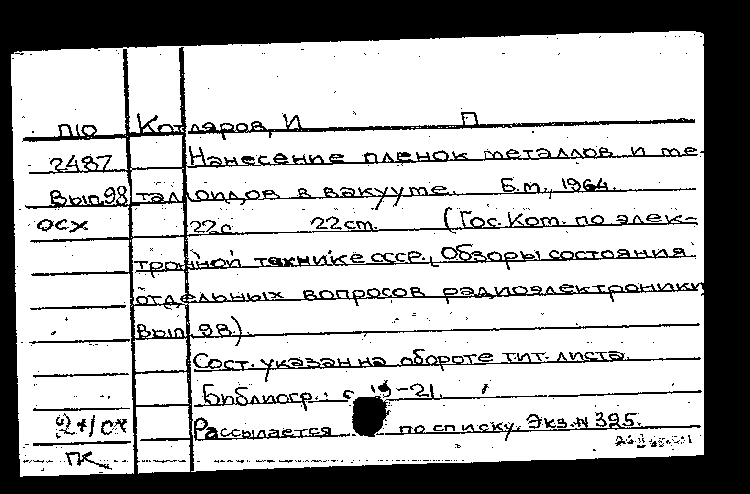 П10 Котляров, И П
2487 Нанесение пленок металлов и ме-
Вып.98 таллоидов в вакууме. Б.м., 1964.
ОСХ 22с. 22ст. (Гос. Ком. по элек-
тронной технике СССР. Обзоры состояния
отдельных вопросов радиоэлектроники
Вып. 98).
Сост. указан на обороте тит. листа.
Библиогр.: с 19-21.
2+1 сч Рассылается по списку. Экз. N 395.
ПК